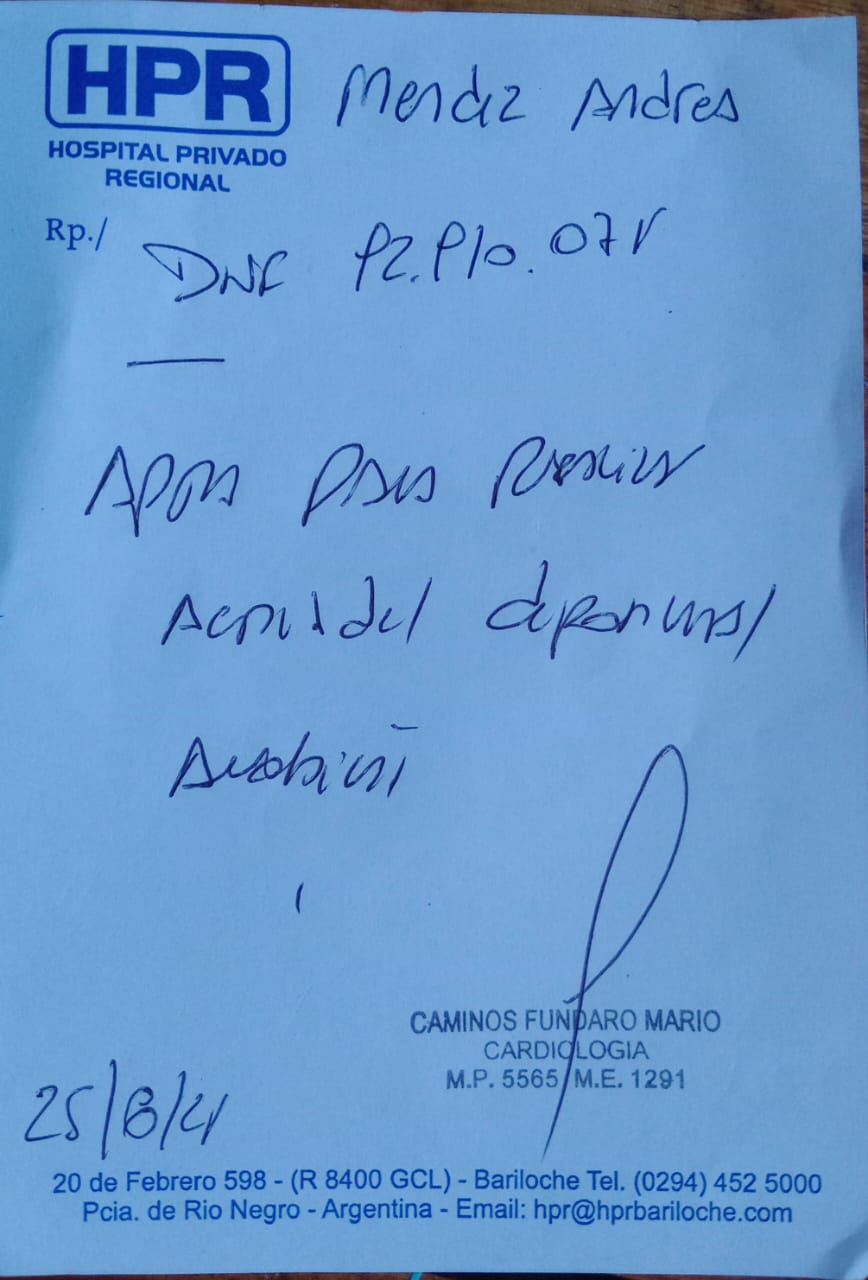 HPR
HOSPITAL PRIVADO
REGIONAL
Mendez Andres
Rp./
DNI
Apto para realizar
actividad
Aerobica
CAMINOS FUNDARO MARIO
CARDIOLOGIA
M.P. 5565 M.E. 1291
25/8/21
20 de Febrero 598 - (R 8400 GCL) - Bariloche Tel. (0294) 452 5000
Pcia. de Rio Negro - Argentina - Email: hpr@hprbariloche.com